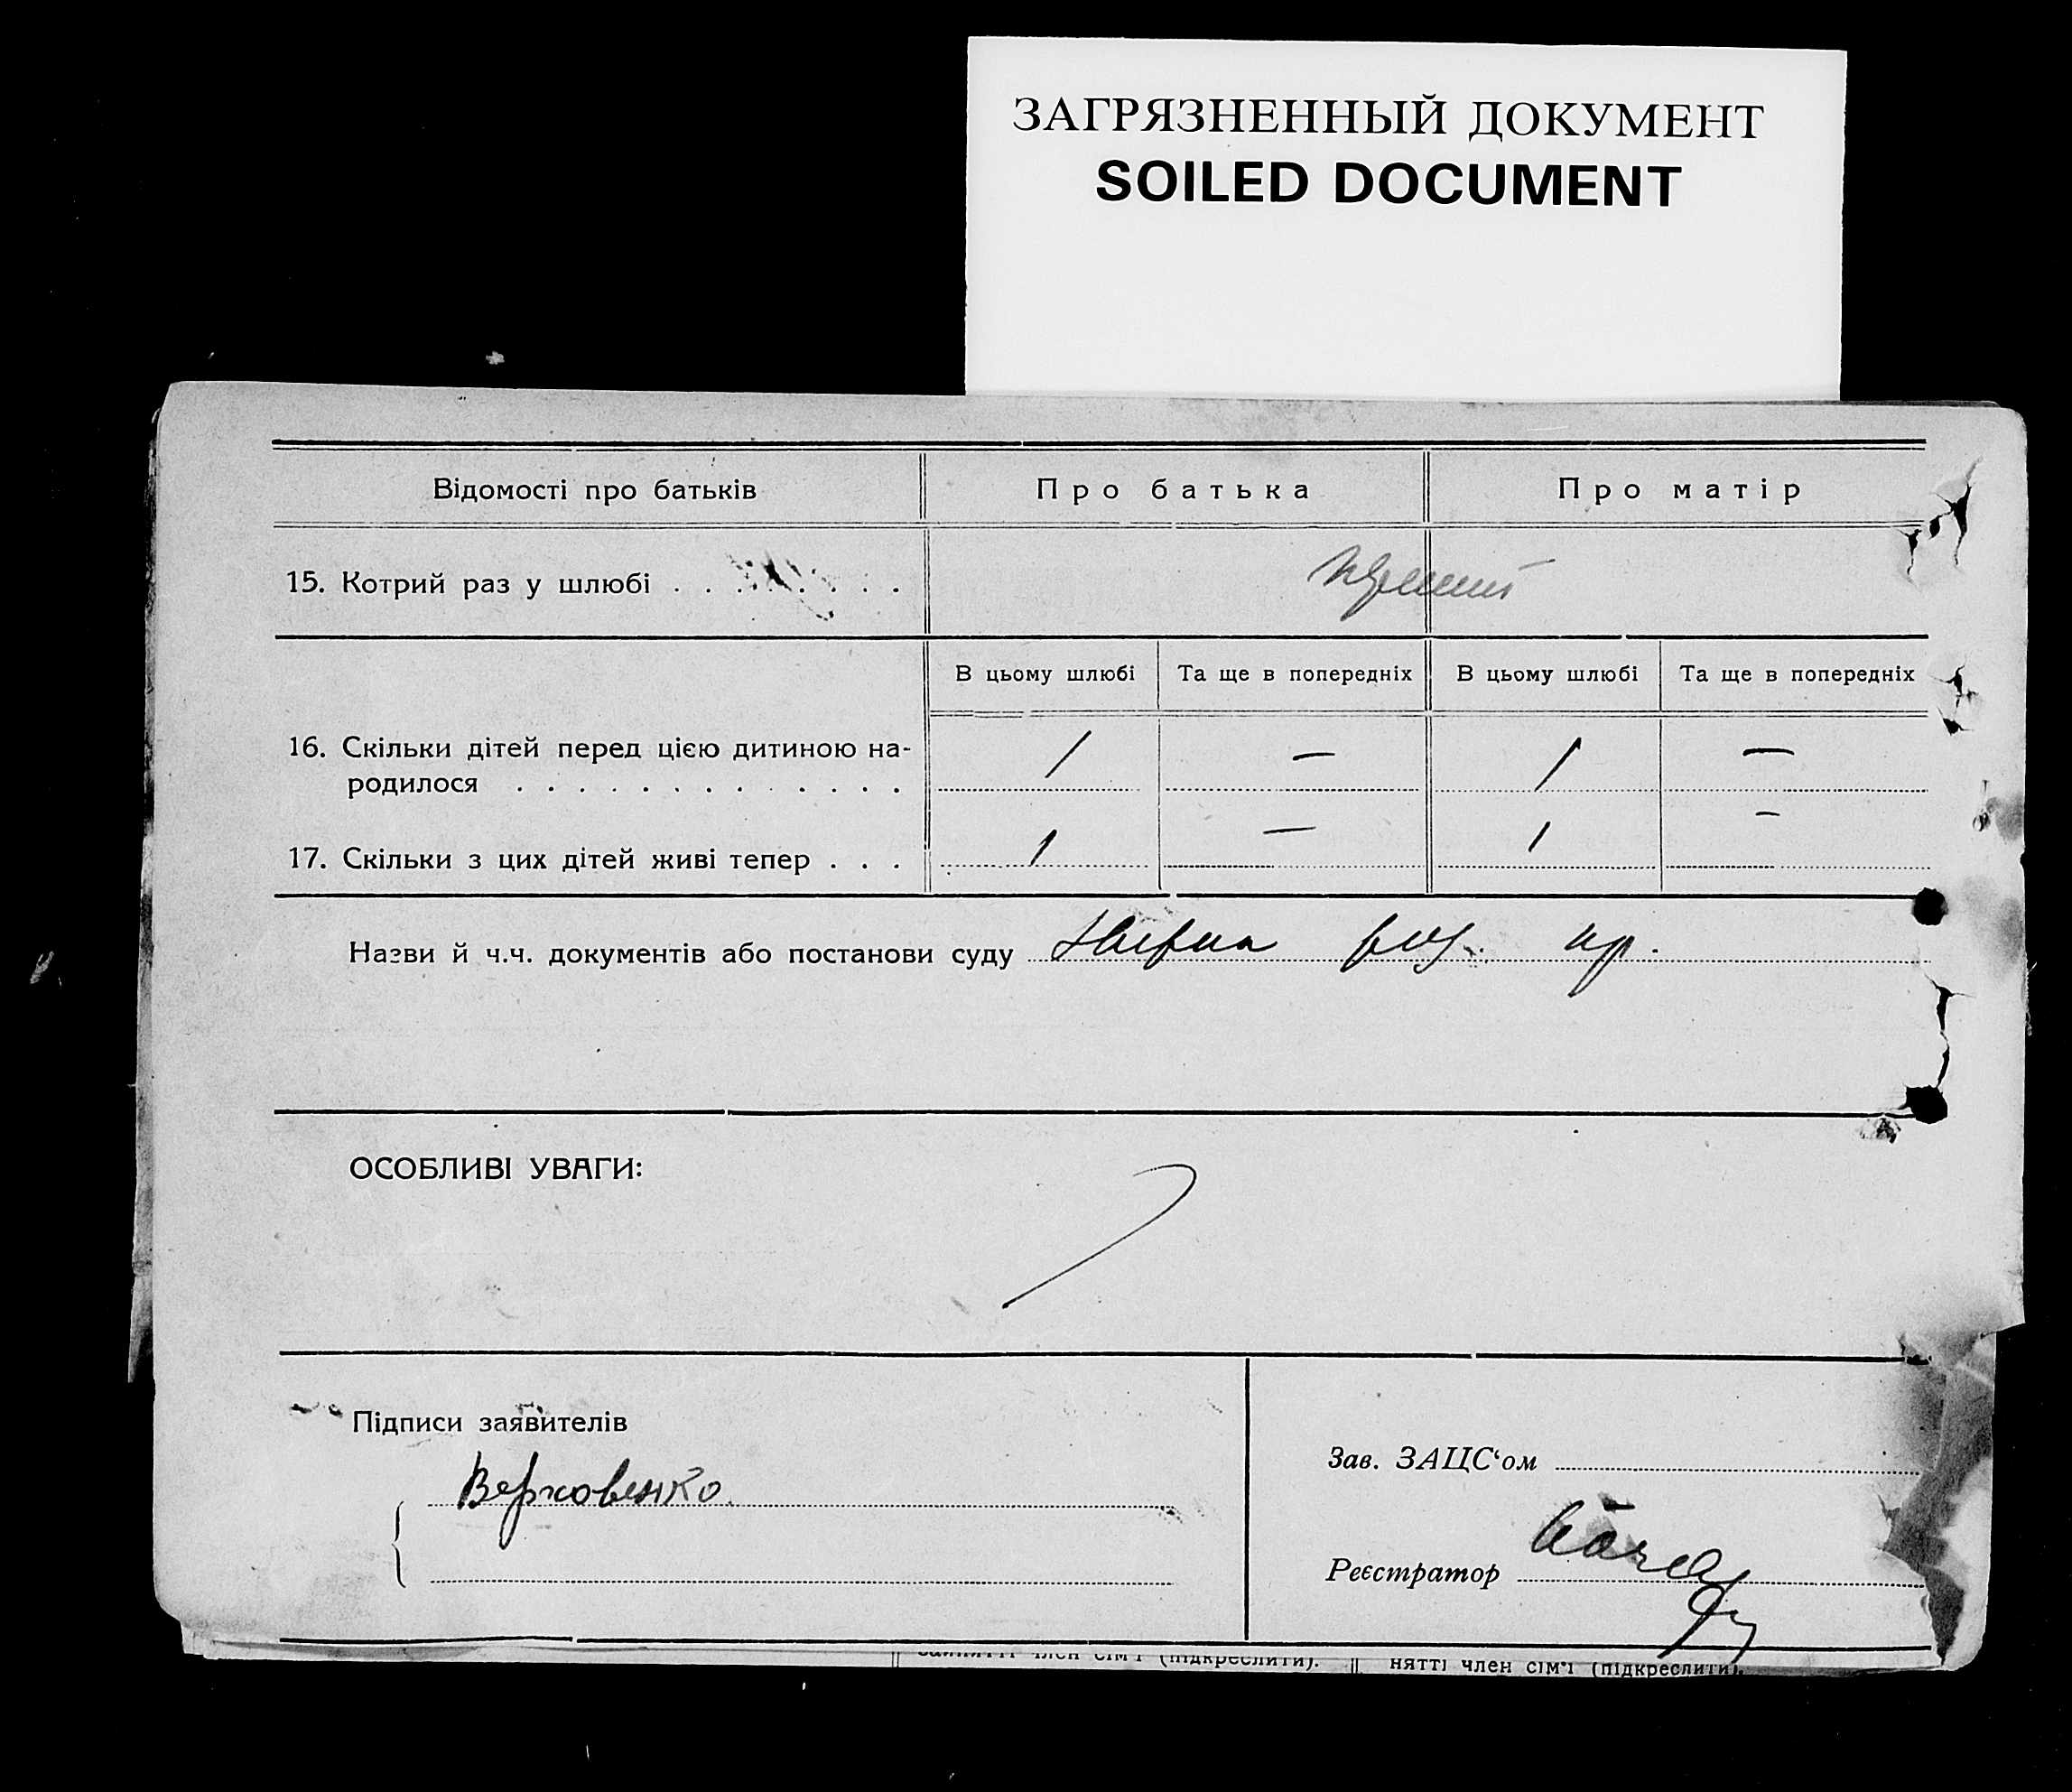 ЗАГРЯЗНЕННЫЙ ДОКУМЕНТ
SOILED DOCUMENT
Відомості про батьків Про батька Про матір
15. Котрий раз у шлюбі . . . . . . . . .
В цьому шлюбі Та ще в попередніх В цьому шлюбі Та ще в попередніх
16. Скільки дітей перед цією дитиною на-
родилося . . . . . . . . . . . . . 1 — 1 —
17. Скільки з цих дітей живі тепер . . . 1 — 1 —
Назви й ч.ч. документів або постанови суду
ОСОБЛИВІ УВАГИ:
Підписи заявителів
Верховенко
Зав. ЗАЦС‘ом
Реєстратор
член сім'ї (підкреслити). нятті член сім'ї (підкреслити).